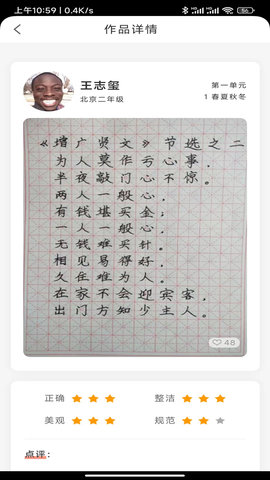 上午10:59 | 0.4K/s
56
作品详情
王志玺
北京二年级
第一单元
1 春夏秋冬
《增广贤文》节选之二
为人莫作亏心事，
半夜敲门心不惊。
两人一般心，
有钱堪买金；
一人一般心，
无钱难买针。
相见易得好，
久住难为人。
在家不会迎宾客，
出门方知少主人。
48
正确
整洁
美观
规范
点评：